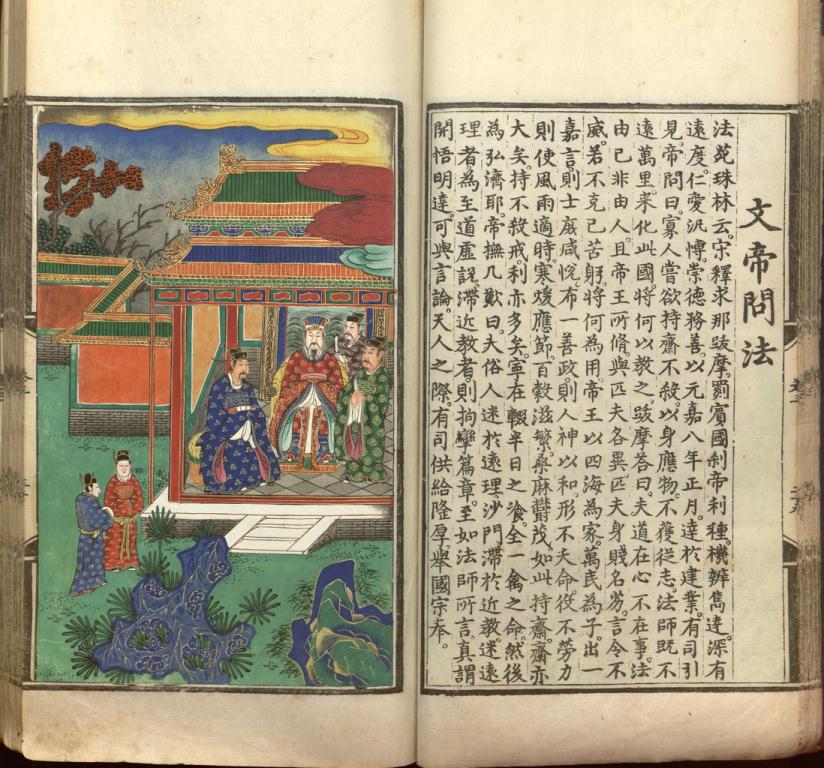 文帝問法
法苑珠林云宋釋求那跋摩罽賓國刹帝利種機辨雋達深有
遠度仁愛汎博崇德務善以元嘉八年正月達於建業有司引
見帝問曰寡人嘗欲持齋不殺以身應物不獲從志法師既不
遠萬里來化此國將何以教之跋摩答曰夫道在心不在事法
由己非由人且帝王所脩與匹夫各異匹夫身賤名劣言令不
威若不克己苦躬將何為用帝王以四海為家萬民為子出一
嘉言則士庶咸悅布一善政則人神以和形不夭命役不勞力
則使風雨適時寒煖應節百穀滋繁桑麻鬱茂如此持齋齋亦
大矣持不殺戒利亦多矣寧在輟半日之飡全一禽之命然後
為弘濟耶帝撫几歎曰夫俗人迷於遠理沙門滯於近教迷遠
理者為至道虛說滯近教者則拘攣篇章至如法師所言真謂
開悟明達可與言論天人之際有司供給隆厚舉國宗奉